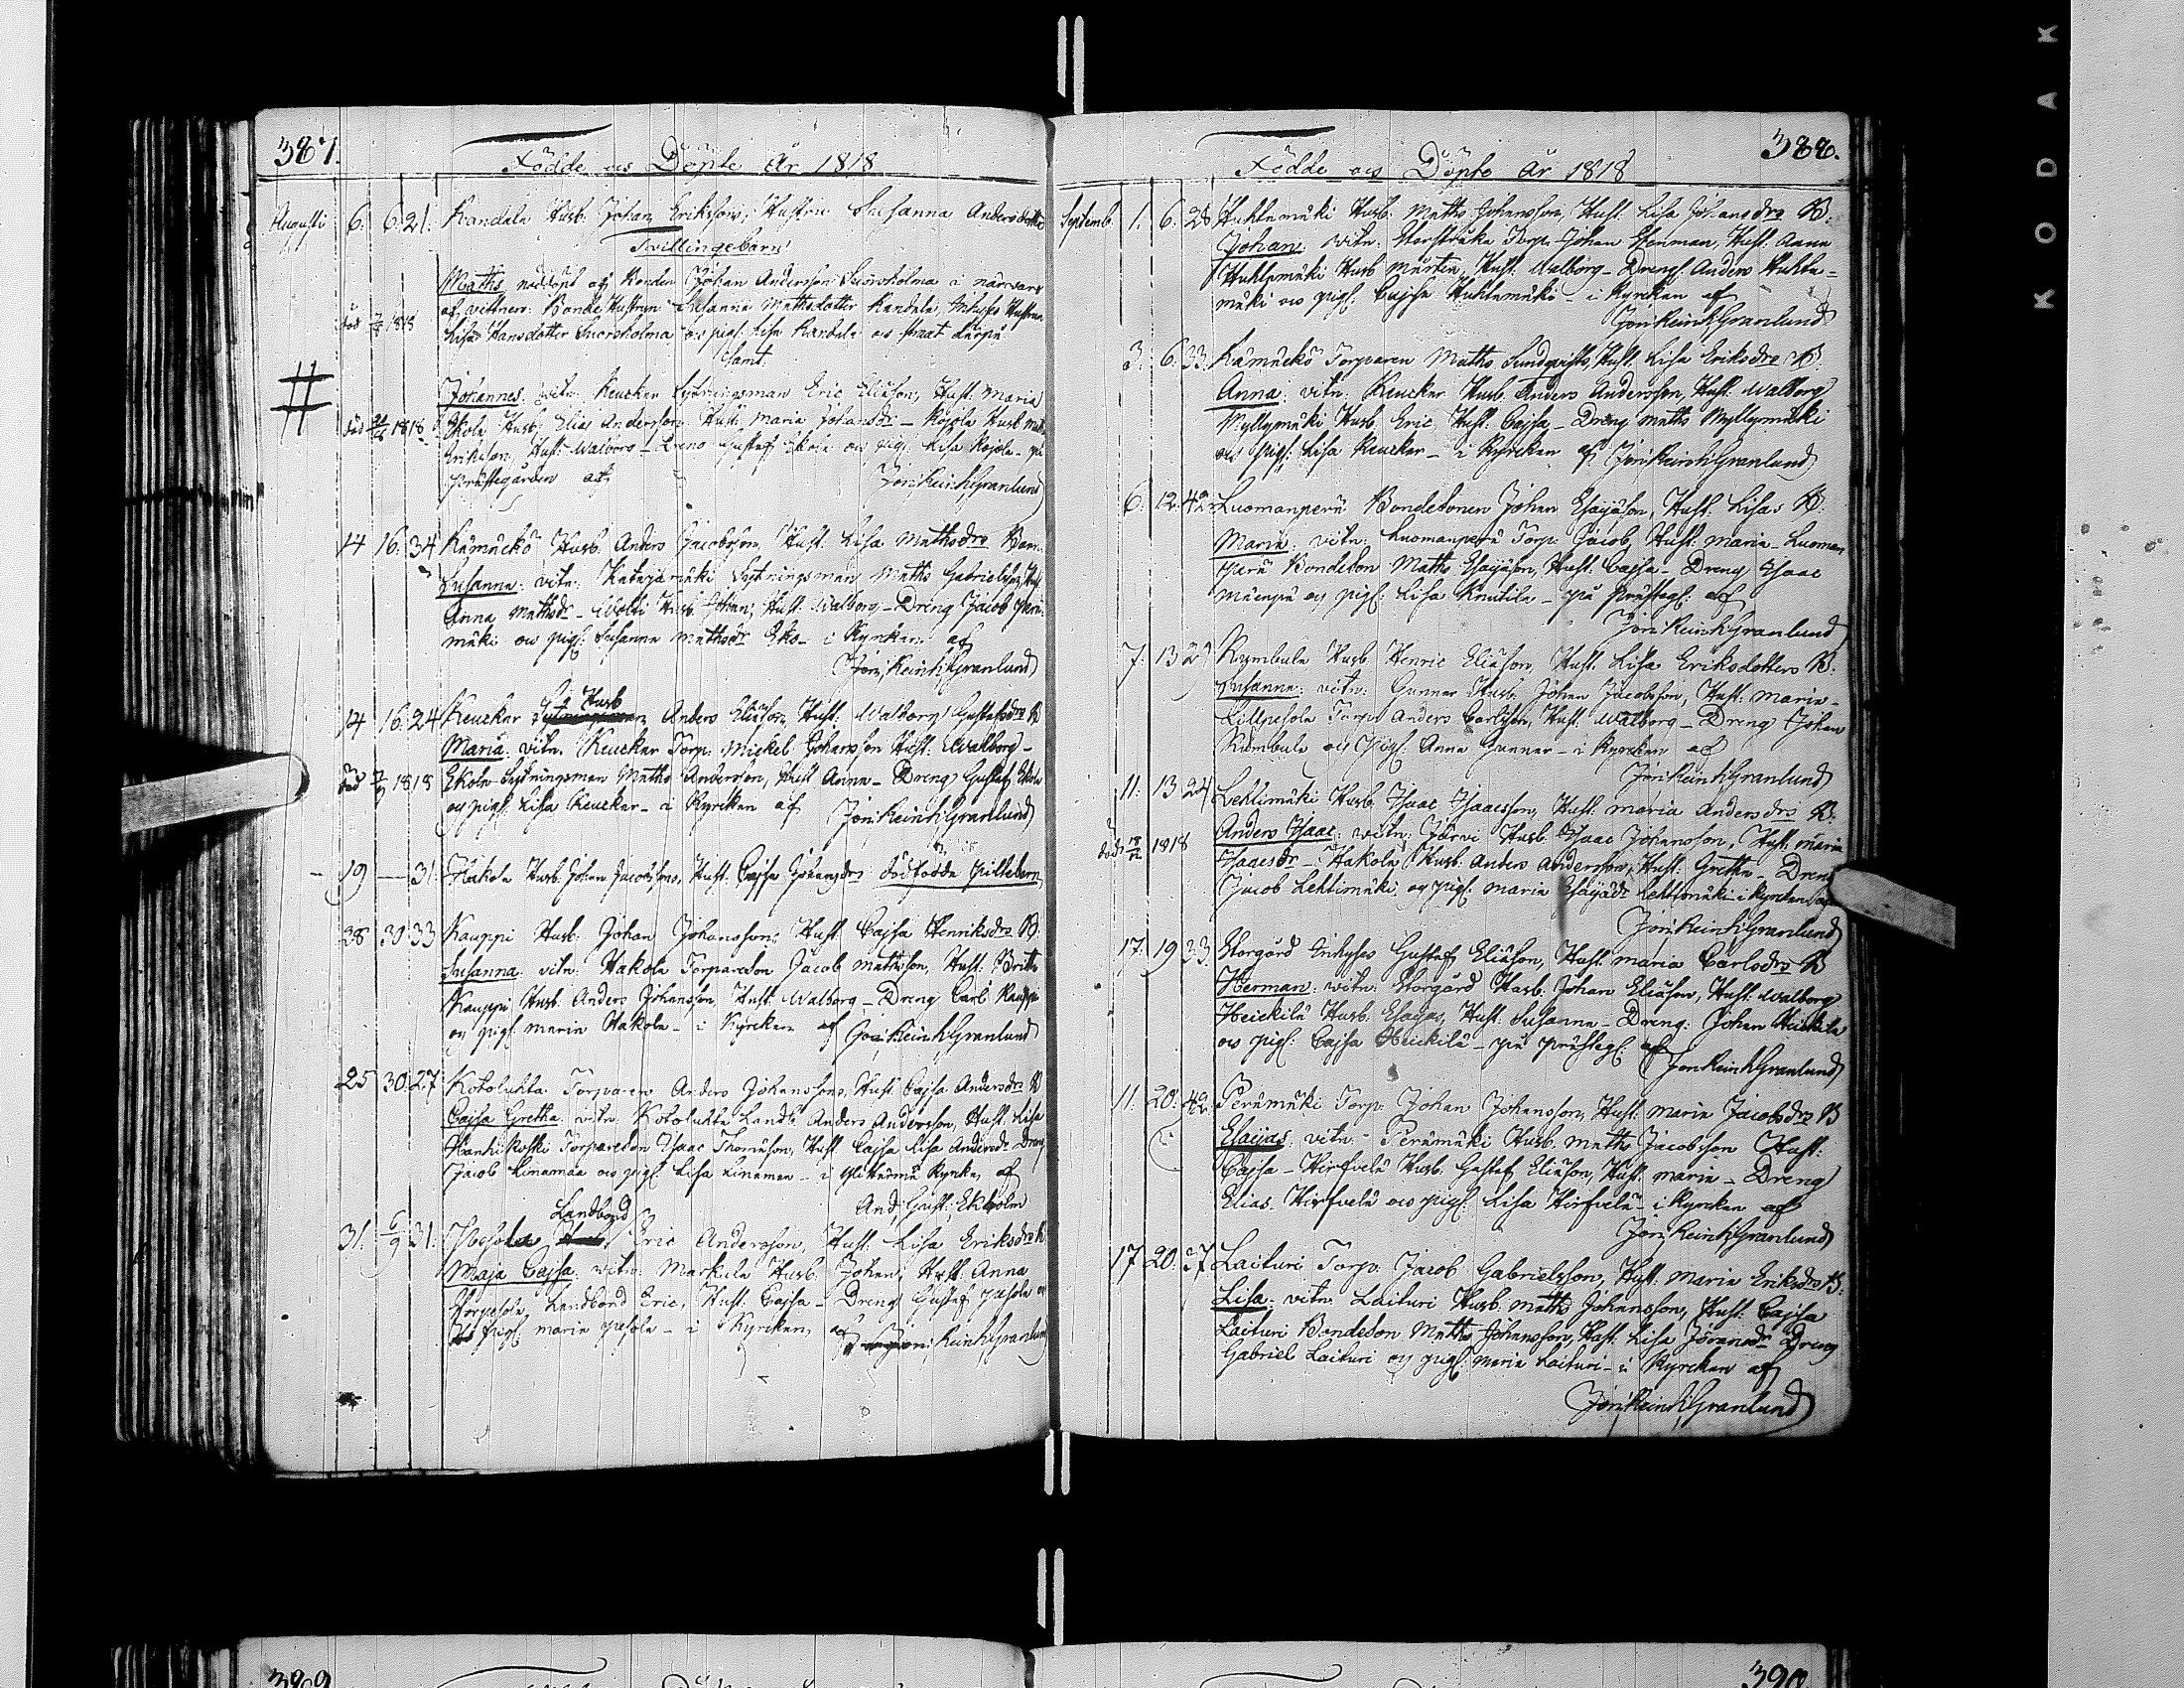 387.
Födde och Döpte år 1818
Augusti 6. 6. 21. Kandala Husb. Johan Erikssons, Hustru Susanna Andersdotter
Tvillingebarn
Maths nöddöpt af Bonden Johan Andersson Suorsholma i närvaro
af vittnen: Bonde Hustrun Susanna Mathsdotter Kandala,
död 1818 Lisa Hansdotter Suorsholma och pig: Lisa Kandala
samt
Johannes. vitn: Keucker Sytningsman Eric Eliäson, Hust: Maria
död 1818 Ekola Husb: Elias Andersson Hust: Maria Johansdr - Rojola Husb
Eriksson, Hust: Walborg - Dreng Gustaf Ekola och pig: Lisa Rojola - på
Prästegården af Jon: Reinh: Granlund
14 16. 34 Kämäckö Husb. Anders Jacobsson, Hust: Lisa Mathsdrs Barn
Susanna: vitn: Katajamäki Sytningsman Maths Gabrielsson, Hust
Anna Mathsdr - Wolti Husb. Johan, Hust: Walborg - Dreng Jacob
mäki och pig: Susanna Mathsdr - i Kyrckan af
Jon: Reinh: Granlund
Husb
14 16. 24 Keucker Anders Eliäson, Hust: Walborg Gustafsdrs B
Maria. vitn. Keucker Torp: Mickel Johansson Hust: Walborg -
död 1818 Ekola Sytningsman Maths Andersson, Hust Anna - Dreng Gustaf Ekola
och pig: Lisa Keucker - i Kyrckan af Jon: Reinh: Granlund
- 19 — 31. Hakola Husb. Johan Jacobssons, Hust: Cajsa Johansdrs dödfödde
28 30. 33 Kauppi Husb. Johan Johanssons Hust: Cajsa Henriksdrs B.
Susanna. vitn: Hakola Torpareson Jacob Mathsson, Hust: Britta
Kauppi Husb. Anders Johansson, Hust: Walborg - Dreng Carl Kauppi
och pig: Maria Hakola - i Kyrckan af Jon: Reinh: Granlund
25 30. 27 Kotoluhta Torparen Anders Johanssons, Hust: Cajsa Andersdrs B
Cajsa Gretha. vitn: Kotoluhta Landb: Anders Andersson, Hust: Lisa
Torpareson Isaac Thomäson, Hust: Cajsa Lisa Andersdr Dreng
Jacob och pig: Lisa - i Kyrcka af
And: Gust: Ekholm
Landbond
31. 6/9 31. Eric Andersson, Hust: Lisa Eriksdrs B
Maja Cajsa. vitn: Markula Husb. Johan, Hust: Anna
Landbond Eric, Hust: Cajsa - Dreng Gustaf Pesola och
pig: Maria Pesola - i Kyrckan, af Reinh: Granlund
388.
Födde och Döpte år 1818
Septemb. 1. 6. 28 Huhtamäki Husb. Maths Johansson, Hust. Lisa Johansdrs B.
Johan: vitn: Torp. Johan Stenman, Hust. Anna
Huhtamäki Husb Mårten, Hust. Walborg - Dreng: Anders Huhta=
mäki och pig: Cajsa Huhtamäki - i Kyrckan af
Jon: Reinh: Granlund
3. 6. 33. Kämäckö Torparen Maths Sundqvists, Hust. Lisa Eriksdrs B.
Anna: vitn: Keucker Husb. Anders Andersson, Hust. Walborg
Myllymäki Husb. Eric Hust. Cajsa - Dreng Maths Myllymäki
och pig: Lisa Keucker - i Kyrckan af Jon: Reinh: Granlund
6. 12. 42. Luomanperä Bondesonen Johan Esaiäson, Hust. Lisas B.
Maria: vitn: Luomanperä Torp: Jacob, Hust: Maria - Luoman
perä Bondeson Maths Esaiäson, Hust: Cajsa - Dreng Isaac
Mäenpä och pig: Lisa Knutila - på Prästeg: af
Jon: Reinh: Granlund
7. 13 27 Rymbala Husb. Henric Eliäson, Hust. Lisa Eriksdotters B.
Susanna: vitn: Gunnar Husb. Johan Jacobsson, Hust. Maria -
Torp: Anders Carlsson, Hust: Walborg - Dreng Johan
Rumbala och Pig: Anna Gunnar - i Kyrckan af
Jon: Reinh: Granlund
11. 13 24 Lehtimäki Husb. Isaac Isaacsson, Hust: Maria Andersdrs B.
Anders Isaac: vitn: Järvi Husb. Isaac Johansson, Hust: Maria
död 1818 Isaacsdr - Hakola Husb. Anders Andersson, Hust: Gretha - Dreng
Jacob Lehtimäki och pig: Maria Esaiädr Lehtimäki - i Kyrckan af
Jon: Reinh: Granlund
17. 19 33. Storgård Inhyses Gustaf Eliäson, Hust: Maria Carlsdrs B
Herman: vitn: Storgård Husb. Johan Eliäson, Hust: Walborg
Heickilä Husb. Esaias, Hust: Susanna - Dreng: Johan Heickilä
och pig: Cajsa Heickilä - på Prästeg: af
Jon: Reinh: Granlund
11. 20. 42 Perämäki Torp: Johan Johansson, Hust: Maria Jacobsdrs B
Esaijas. vitn: Perämäki Husb. Maths Jacobsson Hust:
Cajsa - Hirfvelä Husb. Gustaf Eliäson, Hust: Maria - Dreng
Elias Hirfvelä och pig: Lisa Hirfvelä - i Kyrckan af
Jon: Reinh: Granlund
17 20. 37 Laituri Torp: Jacob Gabrielsson, Hust: Maria Eriksdrs B.
Lisa: vitn: Laituri Husb. Maths Johansson, Hust: Cajsa
Laituri Bondeson Maths Johansson, Hust. Lisa Jöransdr Dreng
Gabriel Laituri och pig: Maria Laituri - i Kyrckan af
Jon: Reinh: Granlund
389
390.
KODAK